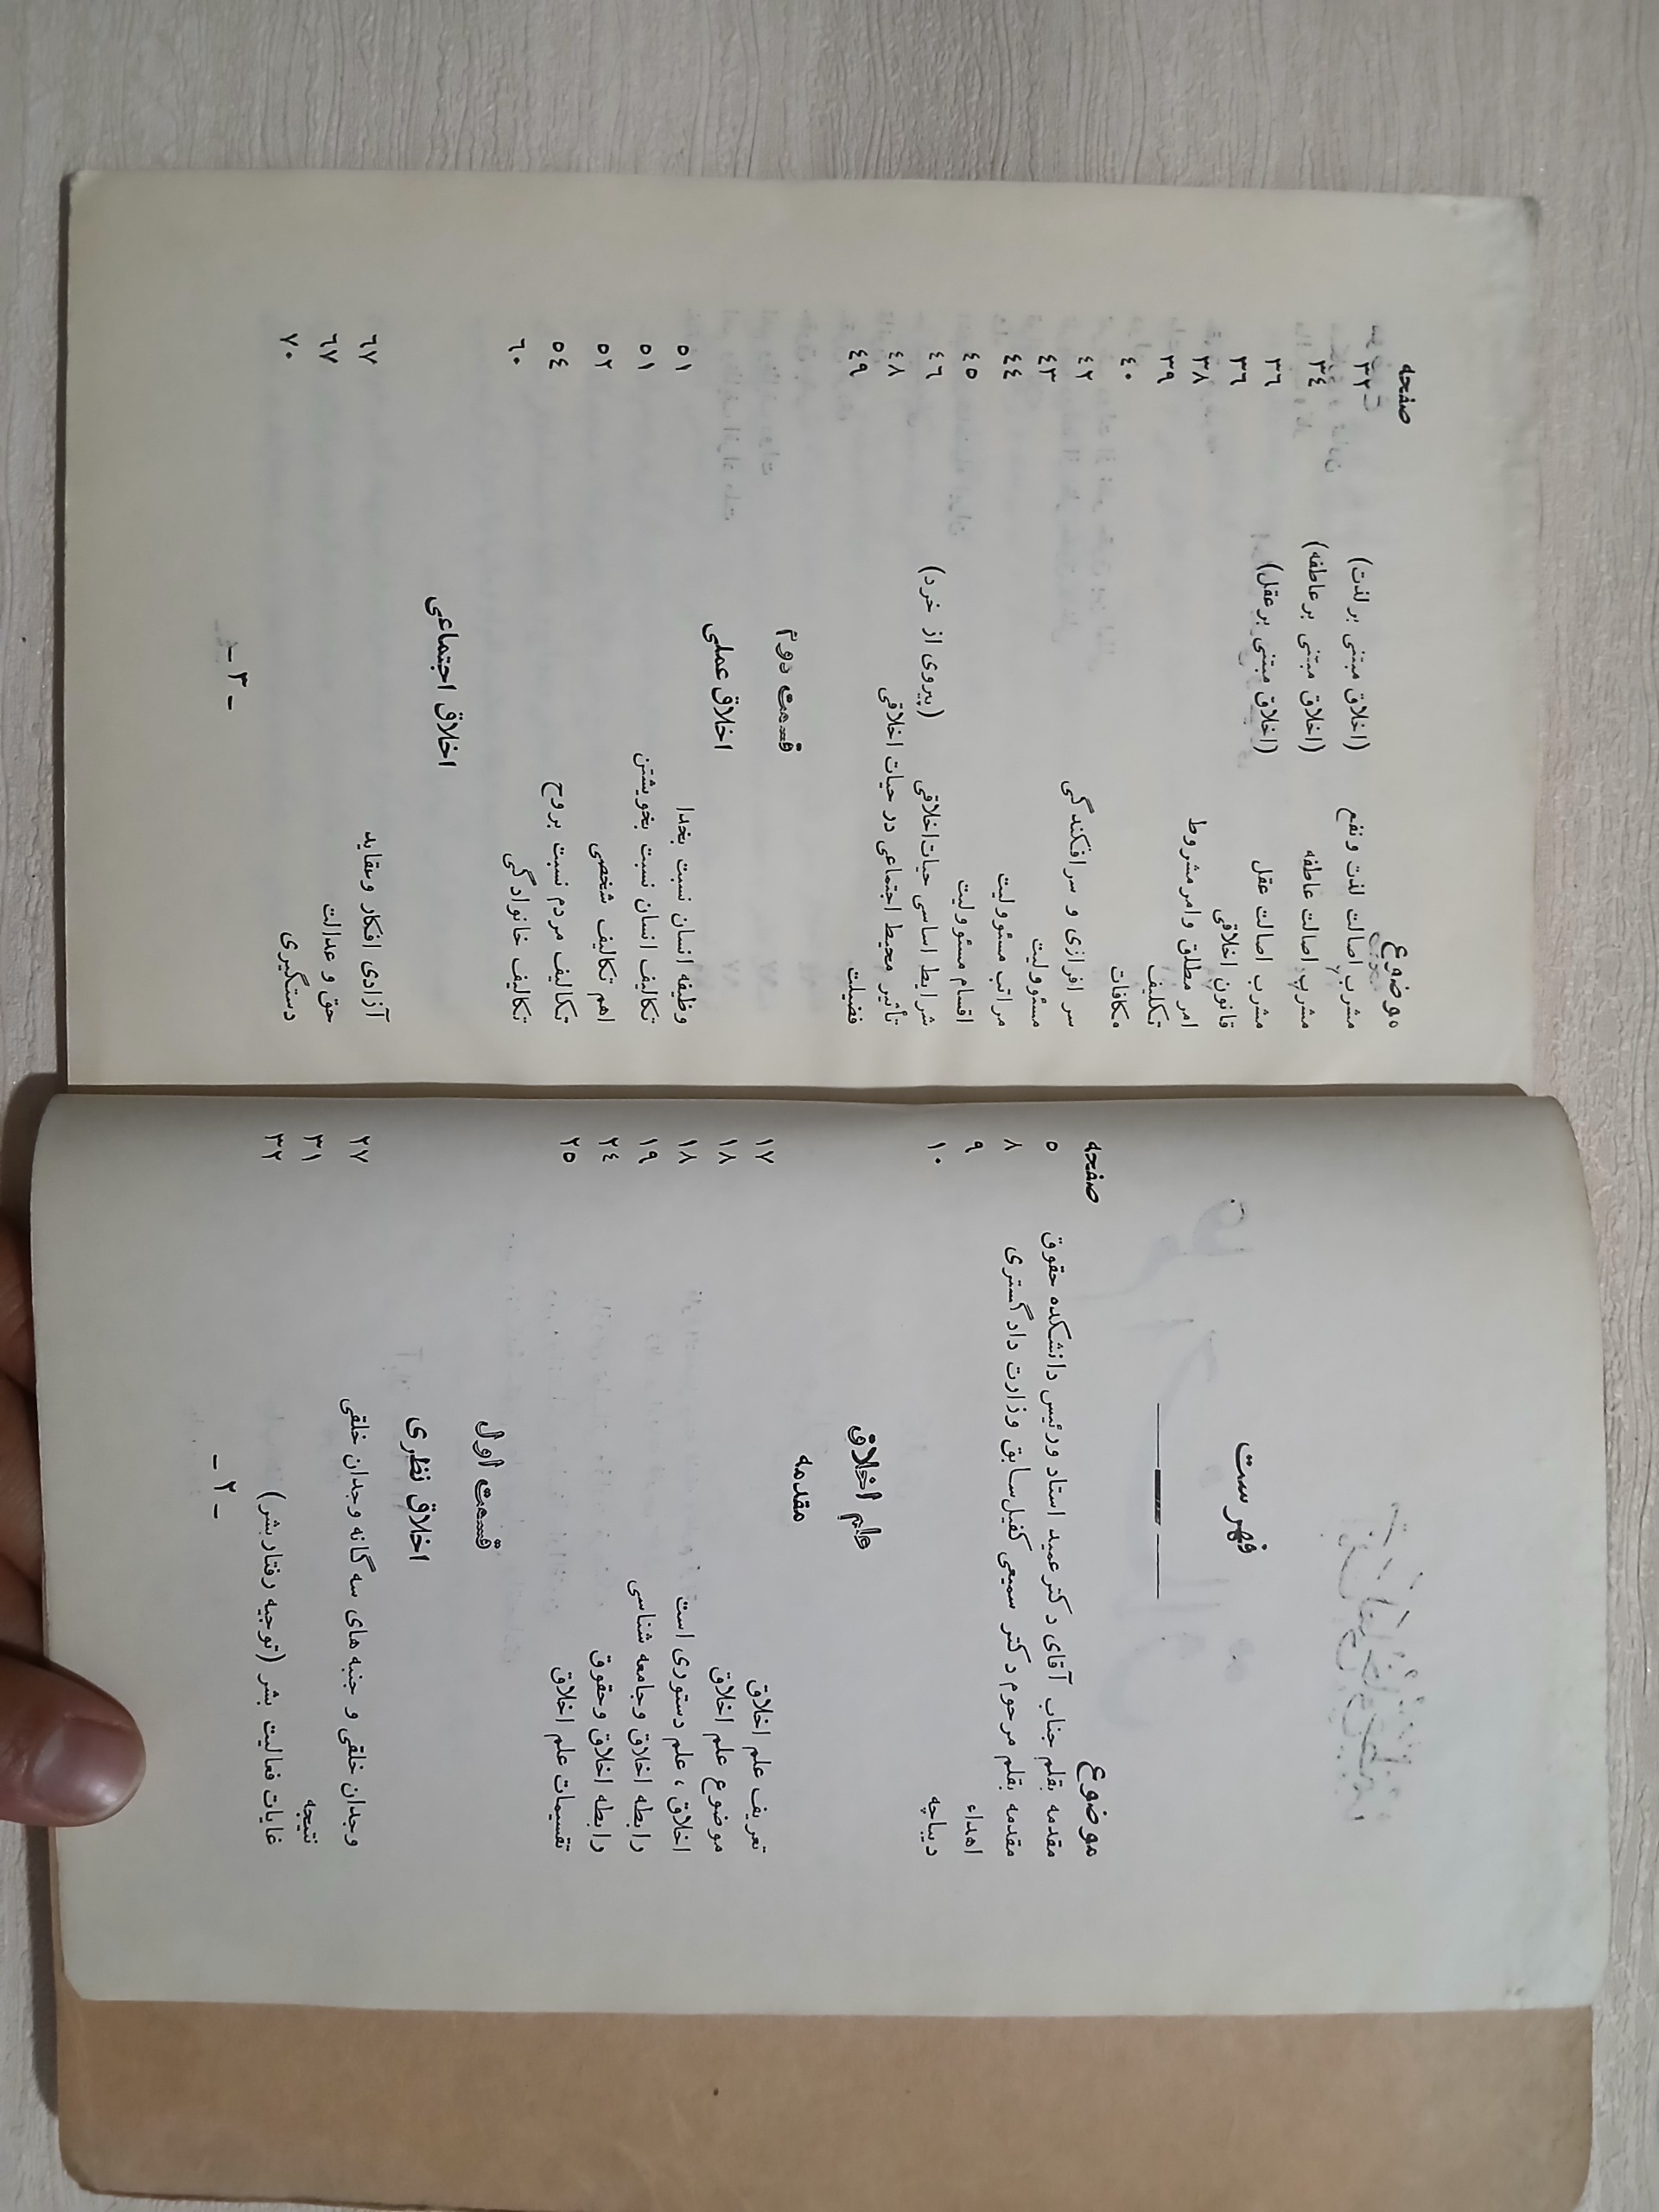 فهرست
موضوع صفحه
مقدمه بقلم جناب آقای دکتر عمید استاد ورئیس دانشکده حقوق ۵
مقدمه بقلم مرحوم دکتر سمیعی کفیل سابق وزارت دادگستری ۸
اهداء ۹
دیباچه ۱۰
علم اخلاق
مقدمه
تعریف علم اخلاق ۱۷
موضوع علم اخلاق ۱۸
اخلاق، علم دستوری است ۱۸
رابطه اخلاق وجامعه شناسی ۱۹
رابطه اخلاق وحقوق ۲٤
تقسیمات علم اخلاق ۲۵
قسمت اول
اخلاق نظری
وجدان خلقی و جنبه های سه گانه وجدان خلقی ۲۷
نتیجه ۳۱
غایات فعالیت بشر (توجیه رفتار بشر) ۳۲
- ۲ -
موضوع صفحه
مشرب اصالت لذت ونفع (اخلاق مبتنی بر لذت) ۳۲
مشرب اصالت عاطفه (اخلاق مبتنی بر عاطفه) ۳٤
مشرب اصالت عقل (اخلاق مبتنی بر عقل) ۳٦
قانون اخلاقی ۳٦
امر مطلق وامر مشروط ۳۸
تکلیف ۳۹
مکافات ٤۰
سر افرازی و سر افکندگی ٤۲
مسئوولیت ٤۳
مراتب مسئوولیت ٤٤
اقسام مسئوولیت ٤۵
شرایط اساسی حیات اخلاقی (پیروی از خرد) ٤٦
تأثیر محیط اجتماعی در حیات اخلاقی ٤۸
فضیلت ٤۹
قسمت دوم
اخلاق عملی
وظیفه انسان نسبت بخدا ۵۱
تکالیف انسان نسبت بخویشتن ۵۱
اهم تکالیف شخصی ۵۲
تکالیف مردم نسبت بروح ۵٤
تکالیف خانوادگی ٦۰
اخلاق اجتماعی
آزادی افکار وعقاید ٦۷
حق و عدالت ٦۷
دستگیری ۷۰
- ۳ -